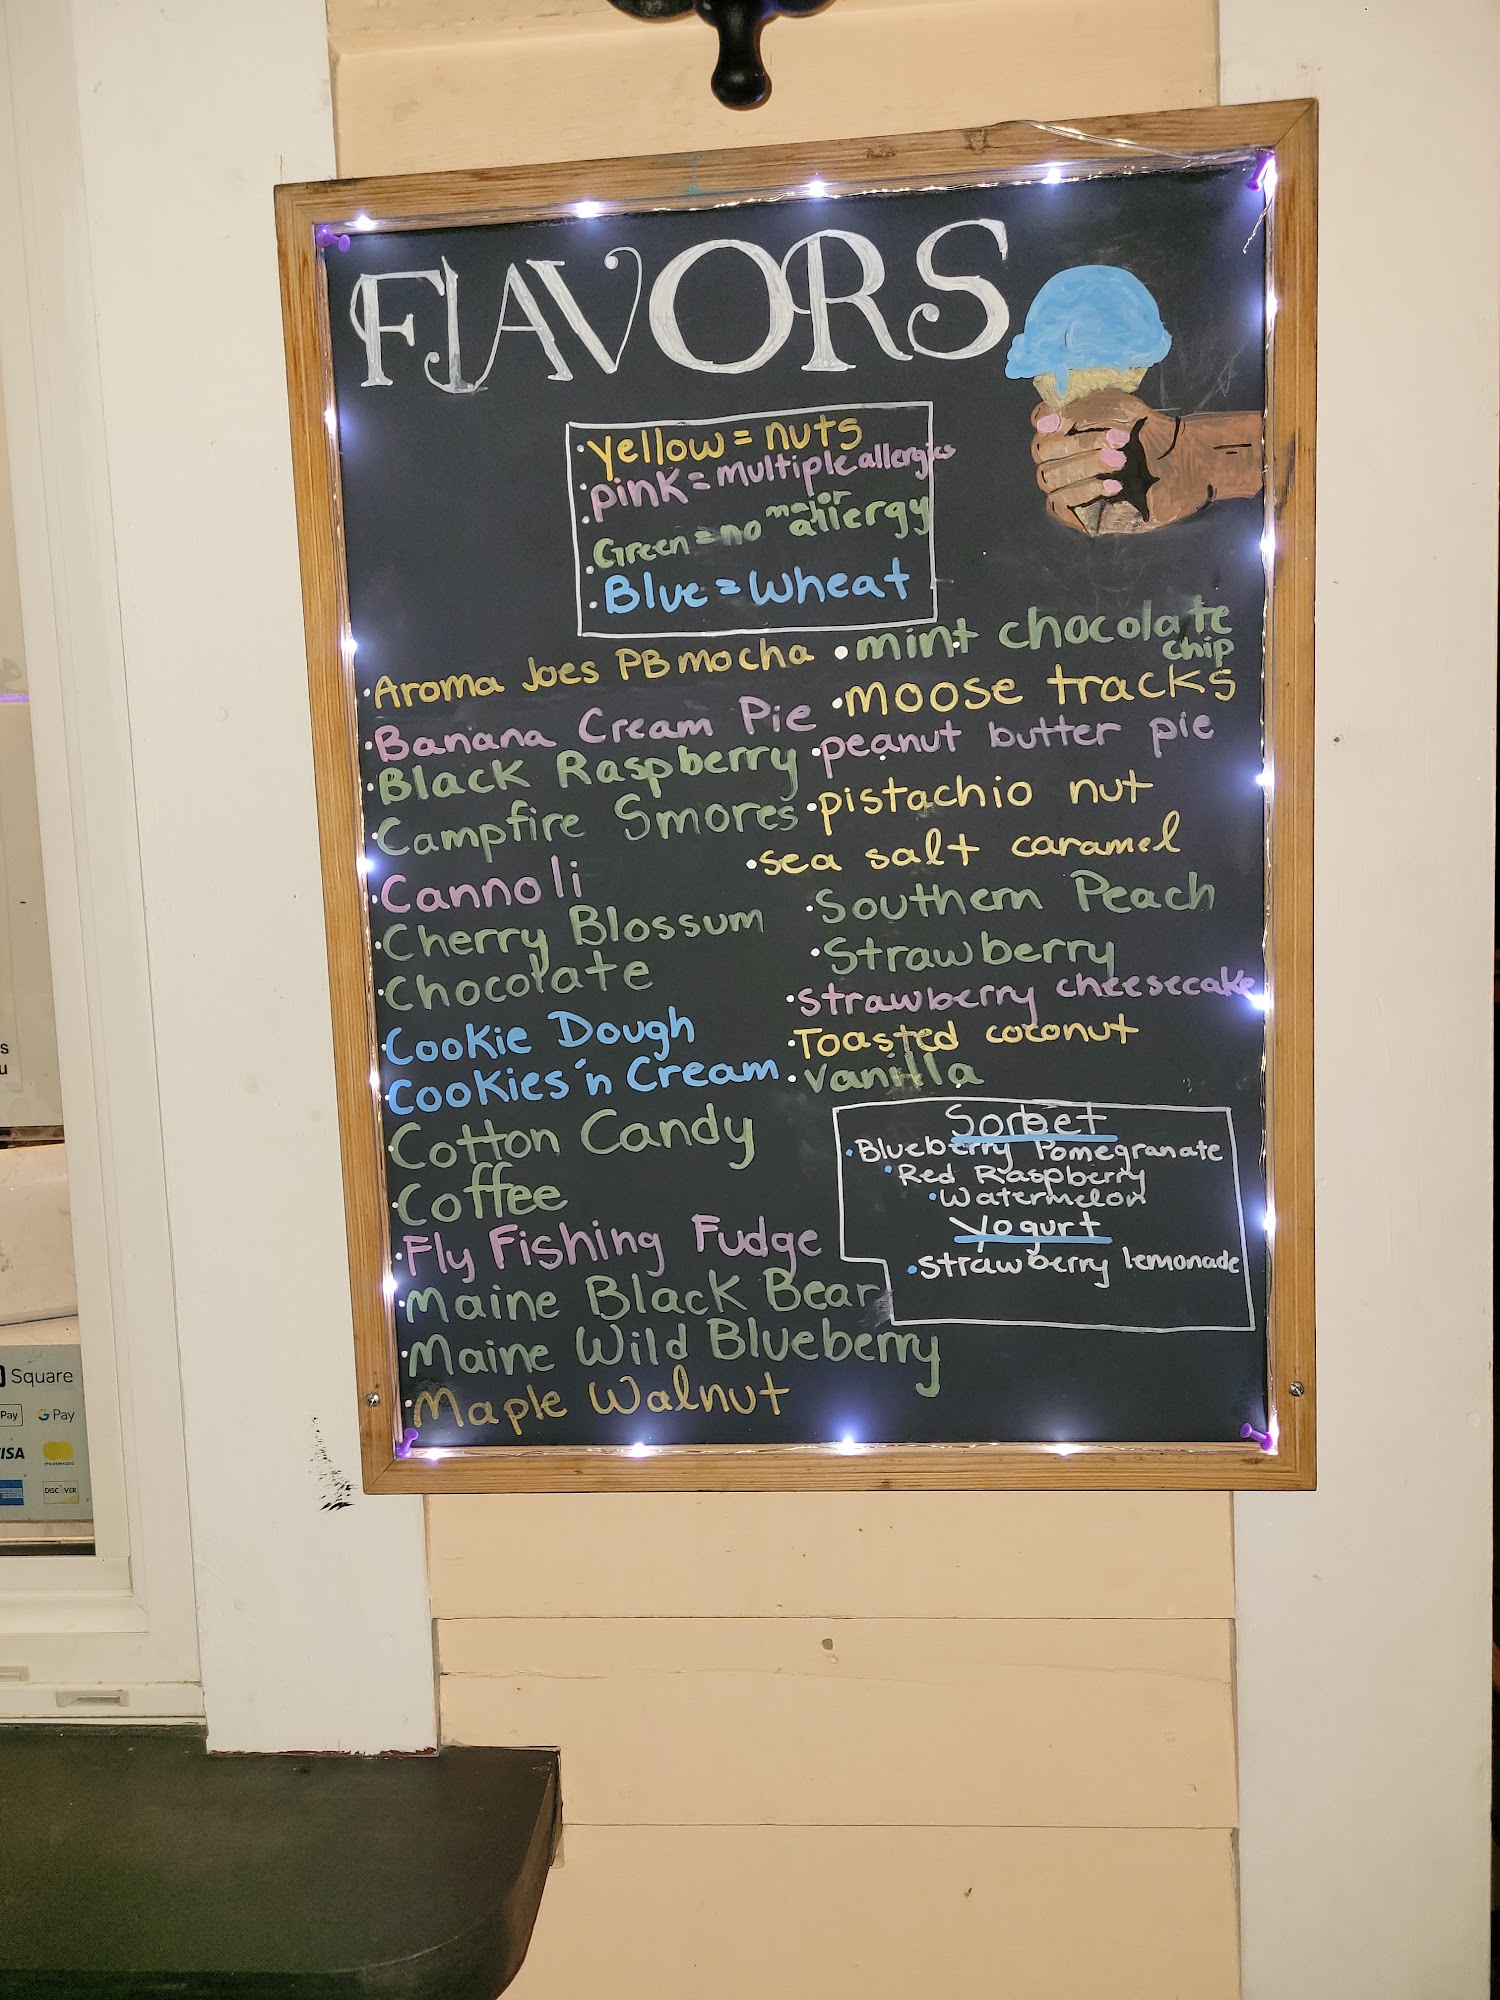 FLAVORS
• yellow = nuts
• pink = multiple allergies
• Green = no major allergy
• Blue = wheat
• Aroma Joes PB mocha
• Banana Cream Pie
• Black Raspberry
• Campfire Smores
• Cannoli
• Cherry Blossum
• Chocolate
• Cookie Dough
• Cookies 'n Cream
• Cotton Candy
• Coffee
• Fly Fishing Fudge
• Maine Black Bear
• Maine Wild Blueberry
• Maple Walnut
• mint chocolate
chip
• moose tracks
• peanut butter pie
• pistachio nut
• sea salt caramel
• Southern Peach
• Strawberry
• strawberry cheesecake
• Toasted coconut
• vanilla
Sorbet
• Blueberry Pomegranate
• Red Raspberry
• Watermelon
Yogurt
• strawberry lemonade
s
u
Square
Pay
G Pay
VISA
mastercard
DISCOVER